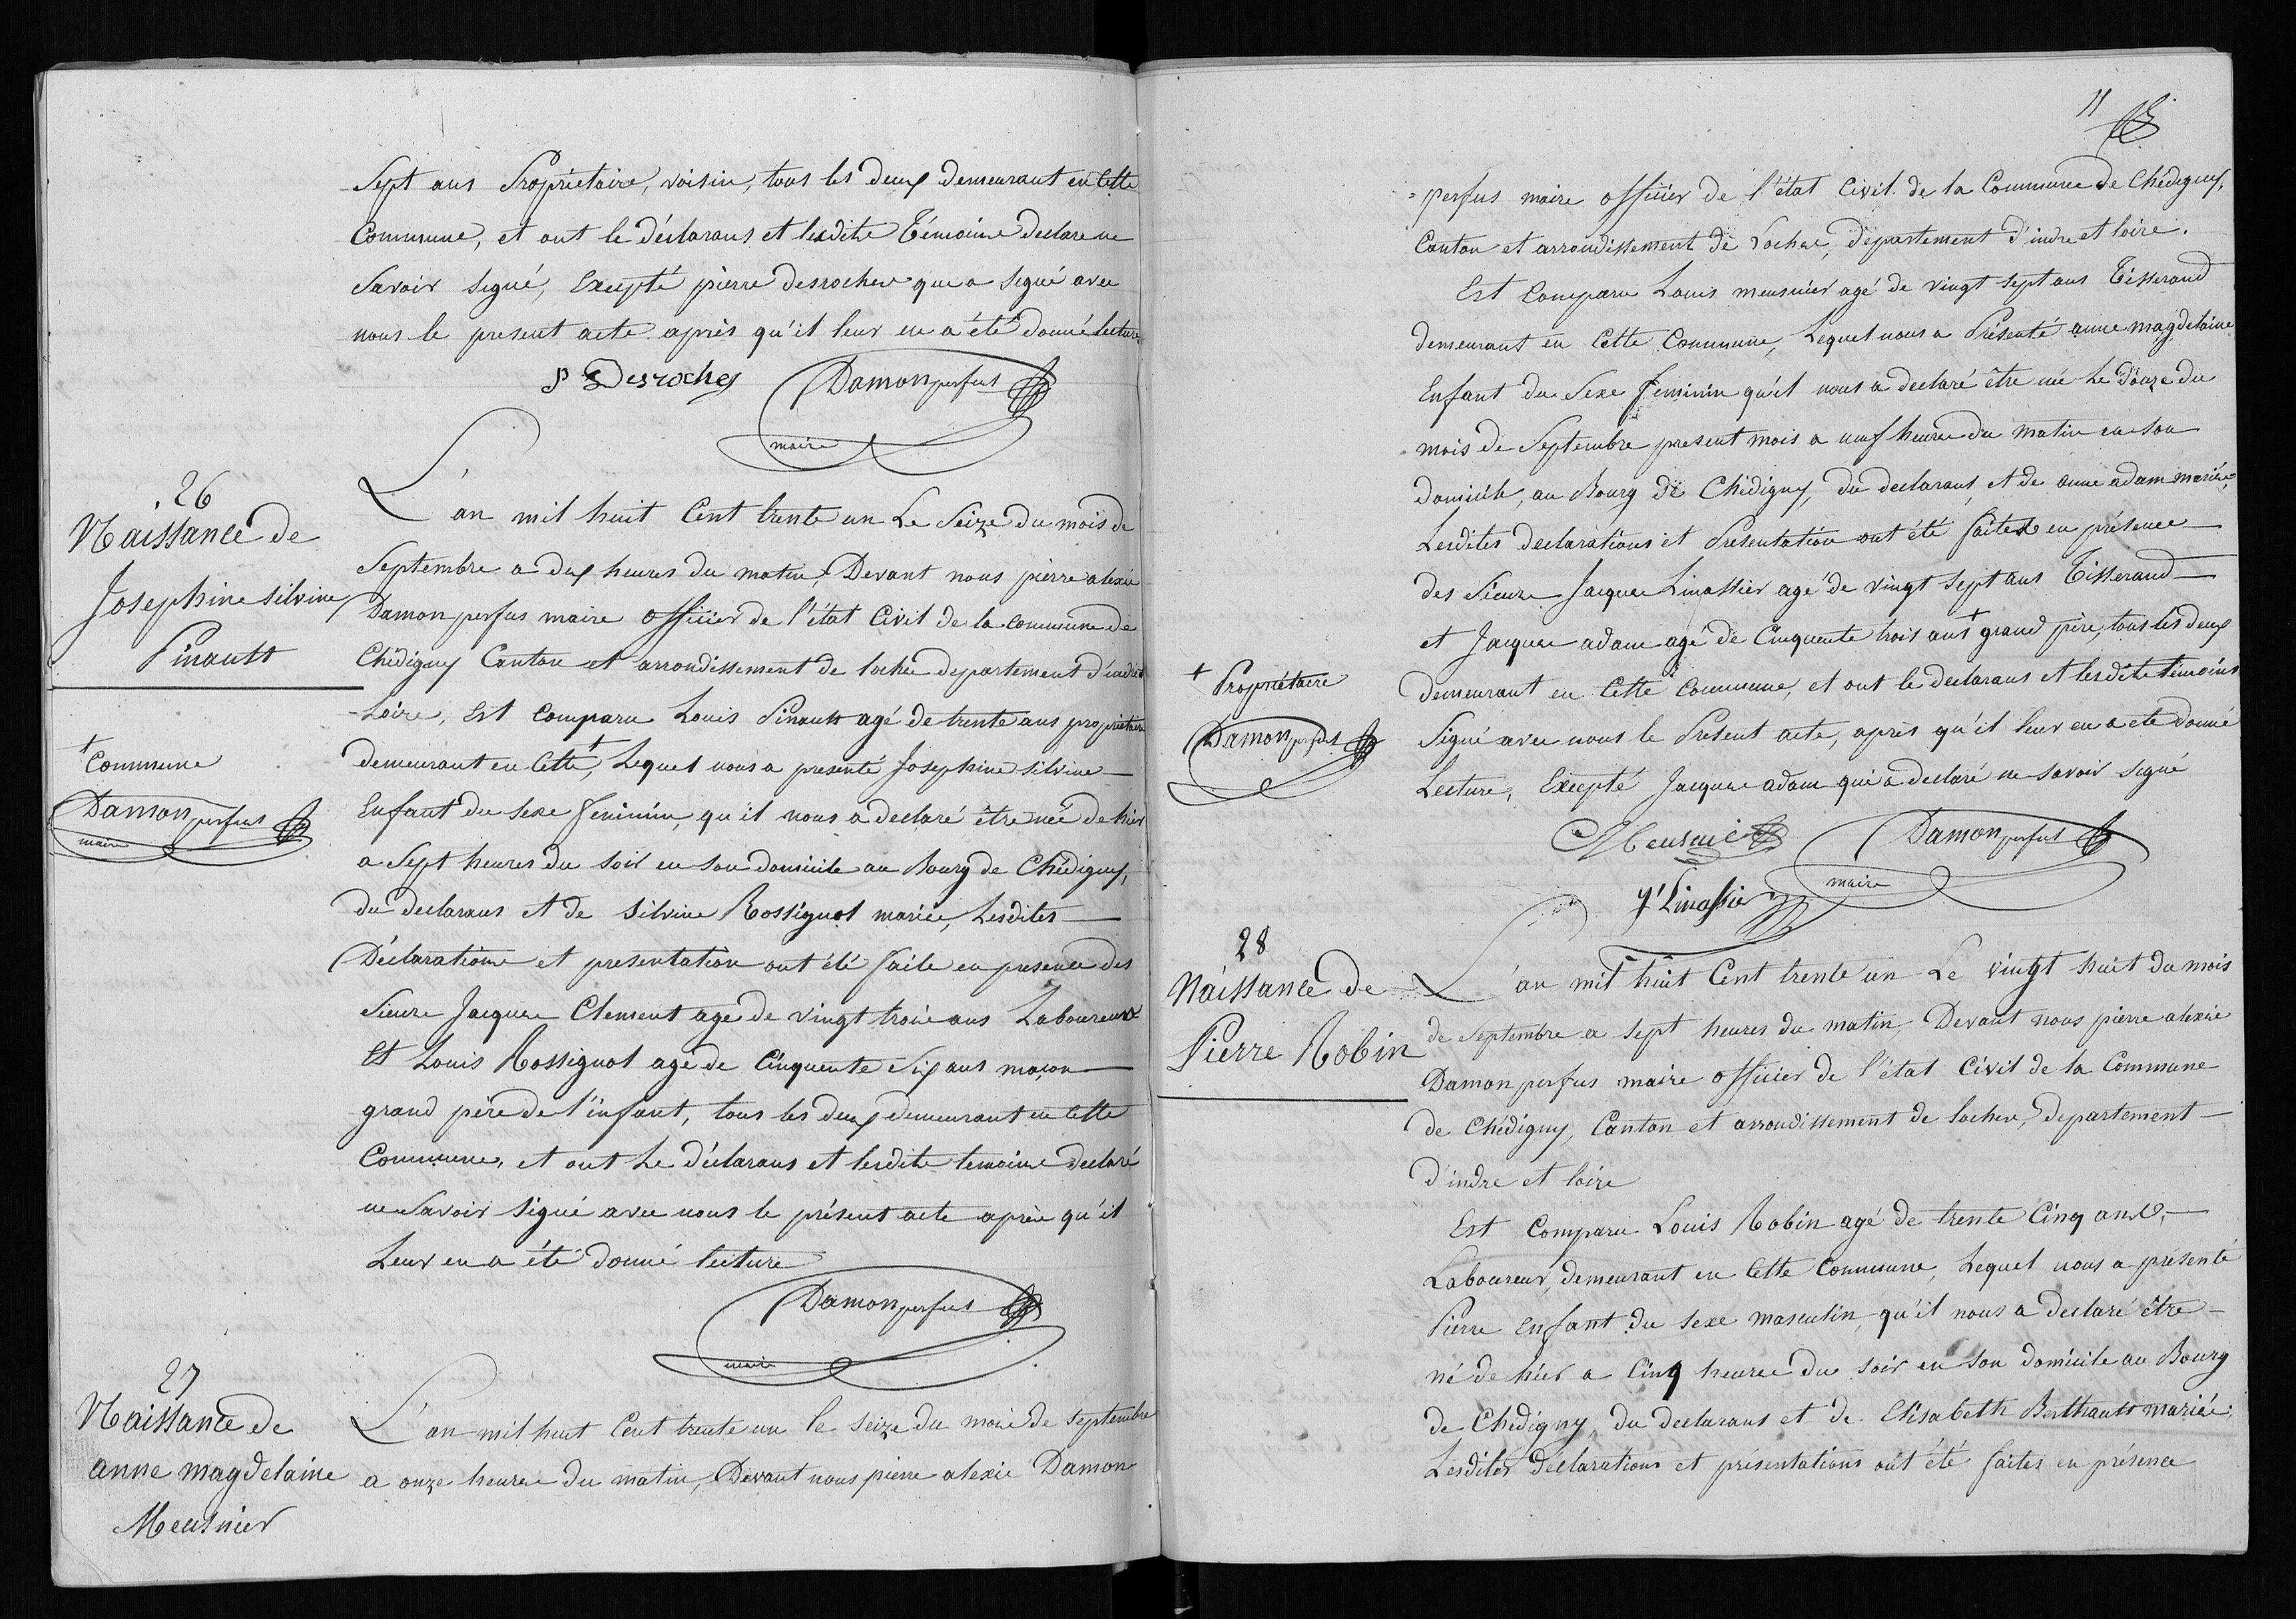 Sept ans Propriétaire, voisin, tous les deux demeurant en Cette
Commune, et ont le déclarans et lesdits Témoins declare ne
Savoir signé, Excepté pierre Desroches qui a signé avec
nous le present acte après qu'il leur en a été donné lecture
P Desroches Damon perfus
maire
26
Naissance de
Josephine silvine
Pinault
L'an mil huit Cent trente un Le Seize du mois de
Septembre a dix heures du matin, Devant nous pierre alexis
Damon perfus maire Officier de l'état Civil de la commune de
Chédigny Canton et arrondissement de loches departement d'indre et
Loire, Est Comparu Louis Pinault agé de trente ans propriétaire
demeurant en Cette +, Lequel nous a presenté Josephine silvine
+ Commune
Damon perfus
maire
Enfant du sexe feminin, qu'il nous a declaré être née de hier
a Sept heures du soir en son domicile au Bourg de Chédigny,
du declarans et de Silvine Rossignol mariée, Lesdites
Déclarations et presentation ont été faite en presence des
Sieurs Jacques Clement age de vingt trois ans Laboureur
Et Louis Rossignol age de Cinquente Six ans maçon
grand père de l'infant, tous les deux demeurant en Cette
Commune, et ont Le déclarans et lesdits temoins declaré
ne Savoir signé avec nous le présent acte après qu'il
Leur en a été donné lecture
Damon perfus
maire
27
Naissance de
anne magdelaine
Meusnier
L'an mil huit Cent trente un le seize du mois de septembre
a onze heures du matin, Devant nous pierre alexis Damon
11
= perfus maire officier de l'état Civil de la Commune de Chédigny,
Canton et arrondissement de Loches, departement d'indre et loire.
Est Comparu Louis meusnier agé de vingt sept ans Tisserand
demeurant en Cette Commune, Lequel nous a Présenté anne magdelaine
Enfant du Sexe feminin qu'il nous a declaré être née Le douze du
mois de Septembre present mois a neuf heures du matin en son
domicile, au Bourg de Chédigny, du declarans, et de anne adam mariée,
Lesdites declarations et Presentation ont été faites en présence
des Sieurs Jacques Linassier agé de vingt sept ans Tisserand
et Jacques adam agé de Cinquente trois ans + grand père, tous les deux
+ Propriétaire
Damon perfus
demeurant en Cette Commune, et ont le declarans et lesdits temoins
Signé avec nous le Présent acte, après qu'il leur en a été donné
Lecture, Excepté Jacques adam qui a declaré ne savoir signé
Meusnié Damon perfus
maire
J Linassier
28
Naissance de
Pierre Robin
L'an mil huit Cent trente un Le vingt huit du mois
de Septembre a sept heures du matin, Devant nous pierre alexis
Damon perfus maire officier de l'état Civil de la Commune
de Chédigny, Canton et arrondissement de loches, departement
d'indre et loire
Est Comparu Louis Robin agé de trente Cinq ans,
Laboureur, demeurant en Cette Commune, Lequel nous a présenté
Pierre Enfant du sexe masculin, qu'il nous a declaré être
né de hier a Cinq heures du soir en son domicile au Bourg
de Chédigny, du declarans et de Elisabeth Berthault mariée,
Lesdites déclarations et présentations ont été faites en présence